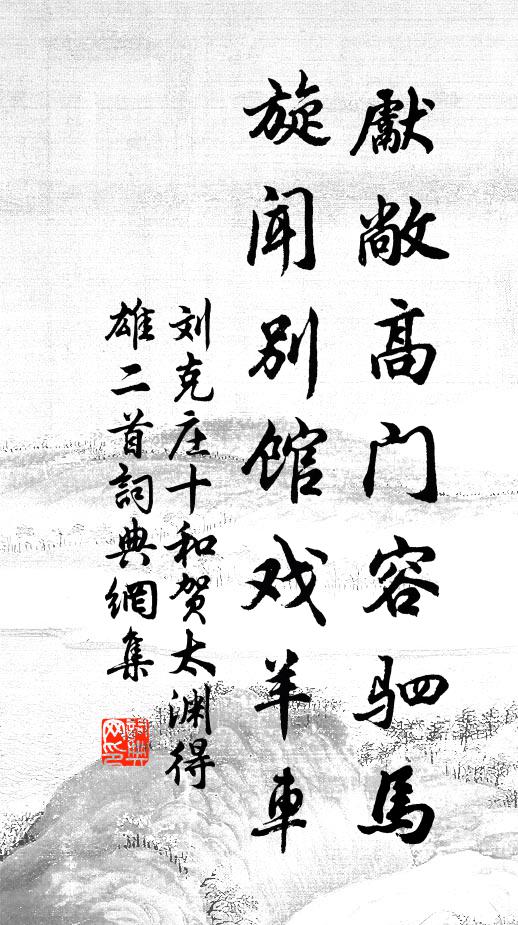 獻敞高门容驷馬
旋闻别馆戏羊車
刘克庄十和贺太渊得
雄二首詞典網集